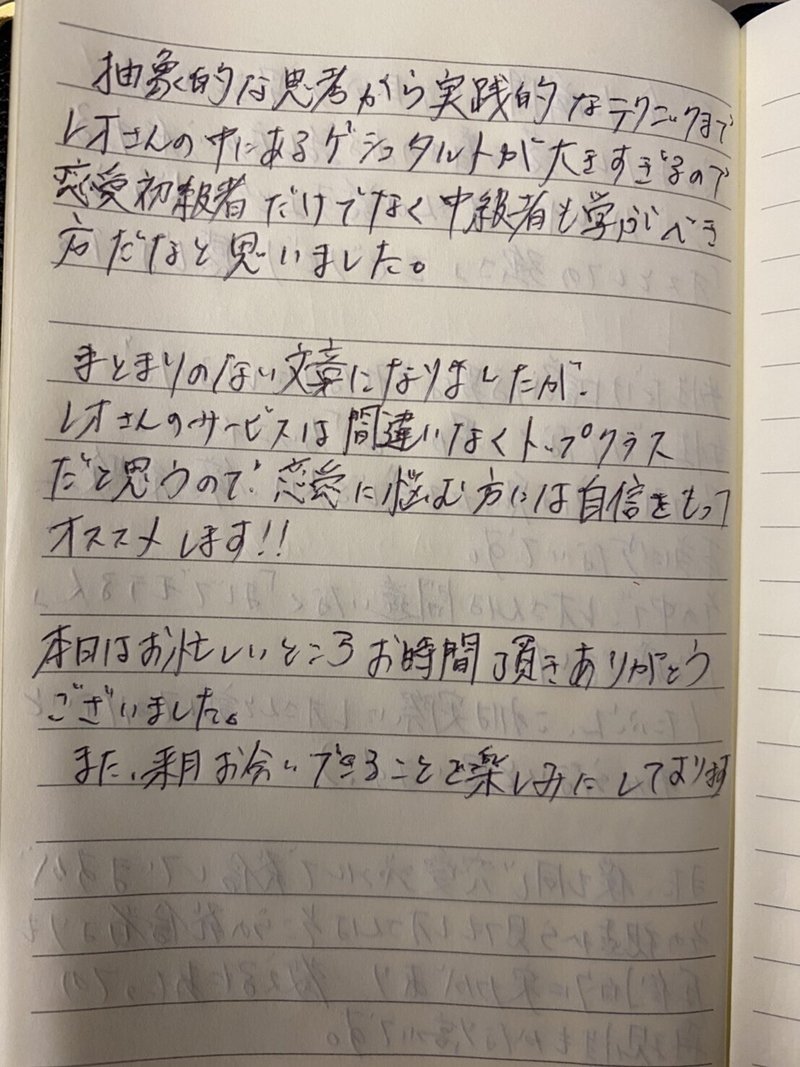 抽象的な思考から実践的なテクニックまで
レオさんの中にあるゲシュタルトが大きすぎるので
恋愛初級者だけでなく中級者も学ぶべき
方だなと思いました。
まとまりのない文章になりましたが、
レオさんのサービスは間違いなくトップクラス
だと思うので、恋愛に悩む方には自信をもって
オススメします!!
本日はお忙しいところお時間頂きありがとう
ございました。
また、来月お会いできることを楽しみにしております